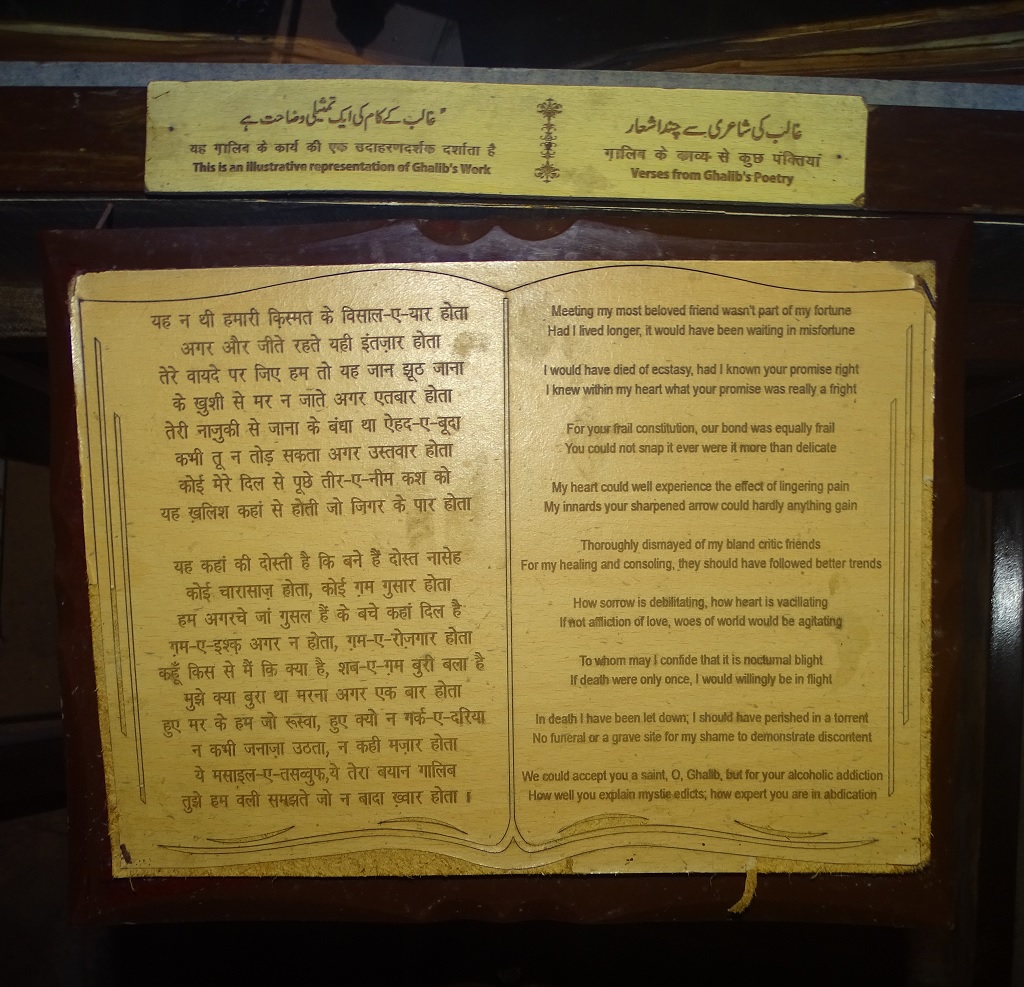 غالب کے کام کی ایک تمثیلی وضاحت ہے
यह ग़ालिब के कार्य की एक उदाहरणदर्शक दर्शाता है
This is an illustrative representation of Ghalib's Work
غالب کی شاعری سے چند اشعار
ग़ालिब के काव्य से कुछ पंक्तियां
Verses from Ghalib's Poetry
यह न थी हमारी क़िस्मत के विसाल-ए-यार होता
अगर और जीते रहते यही इंतज़ार होता
तेरे वायदे पर जिए हम तो यह जान झूठ जाना
के ख़ुशी से मर न जाते अगर एतबार होता
तेरी नाज़ुकी से जाना के बंधा था ऐहद-ए-बूदा
कभी तू न तोड़ सकता अगर उस्तवार होता
कोई मेरे दिल से पूछे तीर-ए-नीम कश को
यह ख़लिश कहां से होती जो जिगर के पार होता
यह कहां की दोस्ती है कि बने हैं दोस्त नासेह
कोई चारासाज़ होता, कोई ग़म गुसार होता
हम अगरचे जां गुसल हैं के बचे कहां दिल है
ग़म-ए-इश्क़ अगर न होता, ग़म-ए-रोज़गार होता
कहूँ किस से मैं कि क्या है, शब-ए-ग़म बुरी बला है
मुझे क्या बुरा था मरना अगर एक बार होता
हुए मर के हम जो रूस्वा, हुए क्यो न गर्क-ए-दरिया
न कभी जनाज़ा उठता, न कही मज़ार होता
ये मसाइल-ए-तसव्वुफ़,ये तेरा बयान गालिब
तुझे हम वली समझते जो न बादा ख़्वार होता ।
Meeting my most beloved friend wasn't part of my fortune
Had I lived longer, it would have been waiting in misfortune
I would have died of ecstasy, had I known your promise right
I knew within my heart what your promise was really a fright
For your frail constitution, our bond was equally frail
You could not snap it ever were it more than delicate
My heart could well experience the effect of lingering pain
My innards your sharpened arrow could hardly anything gain
Thoroughly dismayed of my bland critic friends
For my healing and consoling, they should have followed better trends
How sorrow is debilitating, how heart is vacillating
If not affliction of love, woes of world would be agitating
To whom may I confide that it is nocturnal blight
If death were only once, I would willingly be in flight
In death I have been let down; I should have perished in a torrent
No funeral or a grave site for my shame to demonstrate discontent
We could accept you a saint, O, Ghalib, but for your alcoholic addiction
How well you explain mystic edicts; how expert you are in abdication